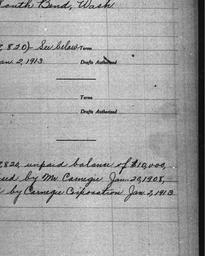 South Bend, Wash
,820) See below Terms
Jan. 2, 1913 Drafts Authorized
Terms
Drafts Authorized
,820, unpaid balance of $10,000,
sed by Mr. Carnegie Jan. 20, 1908,
by Carnegie Corporation Jan. 2, 1913